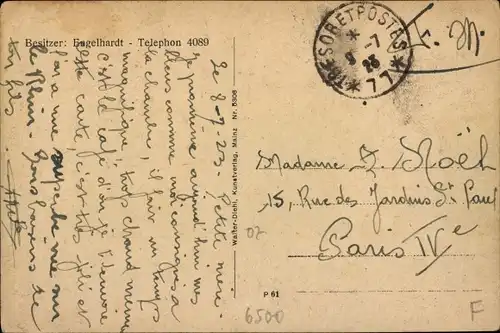 Besitzer: Engelhardt - Telephon 4089
Le 8-7-23. Petite mère
je promène aujourd'hui mes
idées comme moi consignés à
la chambre, il fait un temps
magnifique, trop chaud même
c'est le café d'où je t'envoie
cette carte, c'est très joli et
on a une superbe vue sur
le Rhin. Bons baisers de
ton fils.
Walter-Diehl, Kunstverlag, Mainz Nr. 6306
TRESOR ET POSTES
* 77 *
9 -7
23
F. M.
Madame Noël
15, Rue des Jardins St Paul
Paris IVe
P 61
6500
F